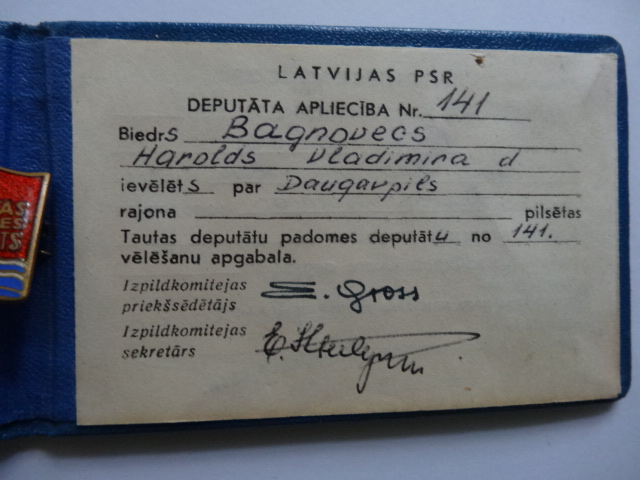 LATVIJAS PSR
DEPUTĀTA APLIECĪBA Nr. 141
Biedrs Bagnovecs
Harolds Vladimira d
ievēlēts par Daugavpils
rajona pilsētas
Tautas deputātu padomes deputātu no 141.
vēlēšanu apgabala.
Izpildkomitejas
priekšsēdētājs Gross
Izpildkomitejas
sekretārs E.
AS
ES
TS